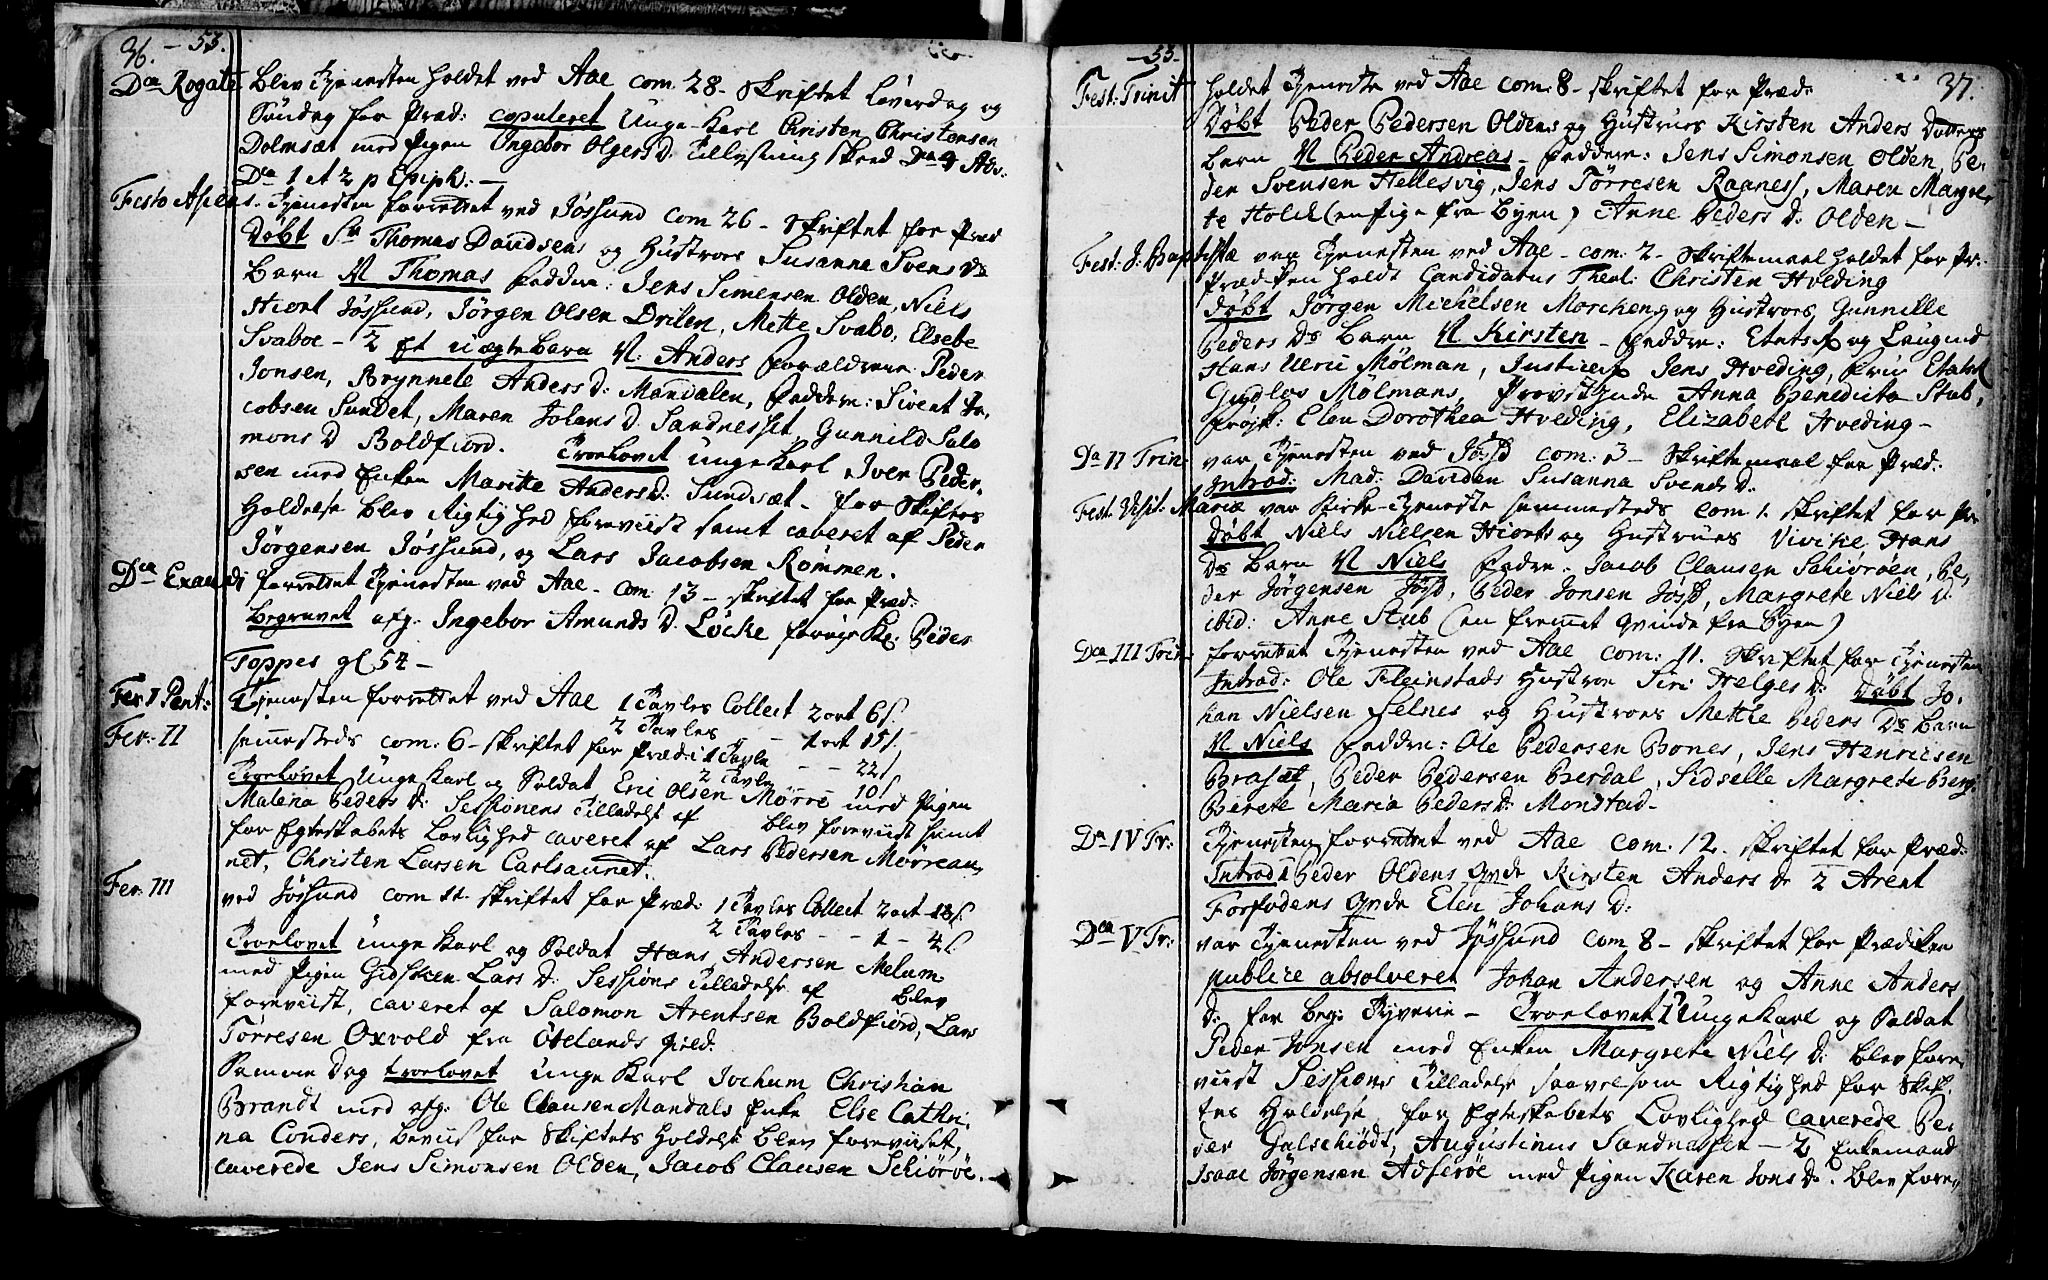 36. – 53.
Dca Rogate Blev Tjenesten holdet ved Aae com 28 – Skriftet Løverdag og
Søndag for Præd: copuleret Unge-Karl Christen Christensen
Dolmsæt med Pigen Ingebor Olgers D. Tillysning skeed Dca 4 Adv:
Dca 1 et 2 p Epiph: –
Festo Ascens. Tjenesten forrettet ved Jøssund com 26 – Skriftet for Præd
Døbt Sr Thomas Davidsens og Hustroes Susanna Svens Ds
Barn N Thomas Faddere: Jens Simensen Olden, Niels
Hiort Jøssund, Jørgen Olsen Drilen, Mette Svabo, Elsebe
Svaboe – 2 Et uægte Barn N. Anders Forældrene Peder
Jonsen, Brynnele Anders D: Mandalen, Faddere: Sivert Ja,
cobsen Sundet, Maren Johans D. Sandnesset, Gunnild Salo
mons D Boldfiord. Troelovet unge Karl Iver Peder,
sen med Enken Maritte Anders D: Sundsæt – for Skiftes
Holdelse blev Rigtighed foreviist samt caveret af Peder
Jørgensen Jøssund, og Lars Jacobsen Rømmen.
Dca Exaudi forrettet Tjenesten ved Aae – com 13 – skriftet for Præd:
Begravet afg: Ingebor Amunds D. Løcke forrige Kl: Peder
Toppes gl 54 –
Fer 1 Pent: Tjenesten forrettet ved Aae 1 Tavles Collect 2 ort 6 s.
2 Tavles – – 1 ort 15 s.
Fer: II sammesteds com: 6 – skriftet for Præd: 1 Tavle – – 22 s
2 Tavle 10 s
Troelovet Unge Karl og Soldat Eric Olsen Mørre med Pigen
Malena Peders D: Sessionens Tilladelse af blev foreviist samt
for Egteskabets Lovlighed caveret af Lars Pedersen Mørreau,
net, Christen Larsen Carlsaunet.
Fer: III ved Jøssund com 11. skriftet for Præd: 1 Tavles Collect 2 ort 18 s.
2 Tavles – – 1 – 4 s
Troelovet unge Karl og Soldat Hans Andersen Melum
med Pigen Gidsken Lars D: Sessions Tilladelse af blev
foreviist, caveret af Salomon Arentsen Boldfiord, Lars
Tørresen Oxvold fra Ørelands Gield.
Samme Dag troelovet Unge Karl Jochum Christian
Brandt med afg: Ole Clausen Mandals Enke Else Cathri,
na Conders, beviis for Skiftets Holdelse blev foreviiset,
caverede Jens Simonsen Olden, Jacob Clausen Schiøröe.
– 53 – 37.
Fest: Trinit holdet Tjeneste ved Aae com: 8 – skriftet for Præd:
Døbt Peder Pedersen Oldens og Hustrues Kirsten Anders Datters
Barn N Peder Andreas – Faddere: Jens Simonsen Olden, Pe,
der Svensen Hellesvig, Jens Tørresen Raaness, Maren Margre,
te Holck (en Pige fra Byen) Anne Peders D: Olden –
Fest: J: Baptistæ var Tjenesten ved Aae – com: 2 – Skriftemaal holdet for Pr:
Prædiken holdt Candidatus Theol: Christen Hveding
Døbt Jørgen Michelsen Morckens og Hustroes Gunnille
Peders Ds Barn N Kirsten – Faddere: Etatsr og Laugmd
Hans Ulric Mølman, Justicer Jens Hveding, Frue Etatsr
Gydlov Mølmans, Provstinde Anna Benedicta Stub,
Frøjk: Elen Dorothea Hveding, Elizabeth Hveding –
Dca II Trin: var Tjenesten ved Jøssd com: 3 – Skriftemaal for Præd:
Introd: Mad: Davidsen Susanna Svends D:
Fest: Visit: Mariæ var Kirke-Tjeneste sammesteds com 1. skriftet for Pr
Døbt Niels Nielsen Hiorts og Hustrues Viviche Hans
Ds Barn N Niels Fadre: Jacob Clausen Schiøröen, Pe,
der Jørgensen Jøssd, Peder Jonsen Jøssd, Margrete Niels D.
ibid: Anne Stub (en fremmet Qvinde fra Byen)
Dca III Trin: forrettet Tjenesten ved Aae com: 11. Skriftet for Tjenesten
Introd: Ole Fleinstads Hustroe Siri Helges D: Døbt Jo,
han Nielsen Selnes og Hustroes Mette Peders Ds Barn
N Niels Faddere: Ole Pedersen Bones, Jens Henricsen
Brasæt, Peder Pedersen Berdal, Sidselle Margrete Berg
Berete Maria Peders D. Monstad –
Dca IV Tr: Tjenesten forrettet ved Aae com: 12. skriftet for Præd:
Introd 1 Peder Oldens Qvde Kirsten Anders D: 2 Arent
Forfodens Qvde Elen Johans D:
Dca V Tr: var Tjenesten ved Jøssund com 8 – skriftet for Prædiken
publice absolveret Johan Andersen og Anne Anders
D: for beg: Tyverie – Troelovet 1 Unge Karl og Soldat
Peder Jonsen med Enken Margrete Niels D: blev fore,
viist Sessions Tilladelse saavelsom Rigtighed for Skif,
tes Holdelse, for Egteskabets Lovlighed caverede Pe,
der Galschiødt, Augustinus Sandnesset – 2 Enkemand
Isaac Jørgensen Adseröe med Pigen Karen Jons D: blev fore,